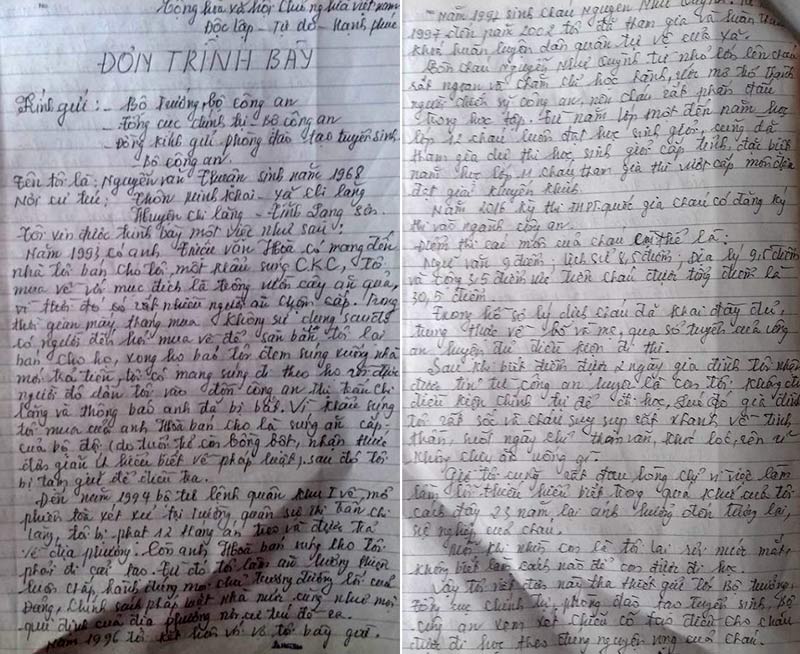 Cộng hòa xã hội Chủ nghĩa Việt nam
Độc lập - Tự do - Hạnh phúc
ĐƠN TRÌNH BÀY
Kính gửi: - Bộ trưởng, bộ công an
- Tổng cục chính trị Bộ công an
- Đồng kính gửi phòng đào tạo tuyển sinh
Bộ công an.
Tên tôi là: Nguyễn văn Thuân sinh năm 1968
Nơi cư trú: Thôn minh khai - xã chi lăng
Huyện chi lăng - tỉnh Lạng Sơn.
Tôi xin được trình bày một việc như sau:
Năm 1993 có anh Triệu văn Hoà có mang đến
nhà tôi bán cho tôi một khẩu súng C.K.C, tôi
mua về với mục đích là trông vườn cây ăn quả,
vì thời đó có rất nhiều người ăn trộm cắp. Trong
thời gian mấy tháng mua không sử dụng sau đó
có người đến hỏi mua về để săn bắn tôi lại
bán cho họ, xong họ bảo tôi đem súng xuống nhà
mới trả tiền, tôi có mang súng đi theo họ rồi được
người đó dẫn tôi vào đồn công an thị trấn chi
lăng và thông báo anh đã bị bắt. Vì khẩu súng
tôi mua của anh Hoà bán cho là súng ăn cắp
của bộ đội (do tuổi trẻ còn bồng bột, nhận thức
đơn giản ít hiểu biết về pháp luật). sau đó tôi
bị tạm giữ để điều tra.
Đến năm 1994 bộ tư lệnh quân khu I về mở
phiên toà xét xử tại trường quân sự thị trấn chi
lăng, tôi bị phạt 12 tháng án treo và được trả
về địa phương. Còn anh Hoà bán súng cho tôi
phải đi cải tạo. Từ đó tôi làm ăn lương thiện
luôn chấp hành đúng mọi chủ trương đường lối của
Đảng, chính sách pháp luật nhà nước cũng như mọi
qui định của địa phương nơi cư trú đề ra.
Năm 1996 tôi kết hôn với vợ tôi bây giờ.
Năm 1997 sinh cháu Nguyễn Như Quỳnh.
1997 đến năm 2002 tôi đã tham gia và huấn
khoá huấn luyện dân quân tự vệ của xã.
Còn cháu nguyễn Như Quỳnh từ nhỏ lớn lên cháu
rất ngoan và chăm chỉ học hành, ước mơ trở thành
người chiến sỹ công an, nên cháu rất phấn đấu
trong học tập. từ năm lớp một đến năm học
lớp 12 cháu luôn đạt học sinh giỏi, cũng đã
tham gia dự thi học sinh giỏi cấp tỉnh, đặc biệt
năm học lớp 11 cháu tham gia thi vượt cấp môn địa
đạt giải khuyến khích.
Năm 2016 kỳ thi THPT quốc gia cháu có đăng ký
thi vào ngành công an.
Điểm thi các môn của cháu cụ thể là:
Ngữ văn 9 điểm; lịch sử 8,5 điểm; Địa lý 9,5 điểm
và cộng 3,5 điểm ưu tiên cháu được tổng điểm là
30,5 điểm.
Trong hồ sơ lý lịch cháu đã khai đầy đủ,
trung thực về bố và mẹ, qua sơ tuyển của công
an huyện đủ điều kiện đi thi.
Sau khi biết điểm được 2 ngày gia đình tôi nhận
được tin từ công an huyện là con tôi không đủ
điều kiện chính trị để đi học, gia đình
tôi rất sốc và cháu suy sụp rất nhanh về tinh
thần, suốt ngày chỉ than vãn, khóc lóc, rên rỉ
không chịu ăn uống gì.
Giờ tôi cũng rất đau lòng chỉ vì việc làm
lầm lỡ thiếu hiểu biết trong quá khứ của tôi
cách đây 23 năm lại ảnh hưởng đến tương lai,
sự nghiệp của cháu.
Mỗi khi nhìn con là tôi lại rơi nước mắt,
không biết làm cách nào để con được đi học.
Vậy tôi viết đơn này tha thiết gửi tới Bộ trưởng,
tổng cục chính trị, phòng đào tạo tuyển sinh, Bộ
công an xem xét chiếu cố tạo điều cho cháu
được đi học theo đúng nguyện vọng của cháu.